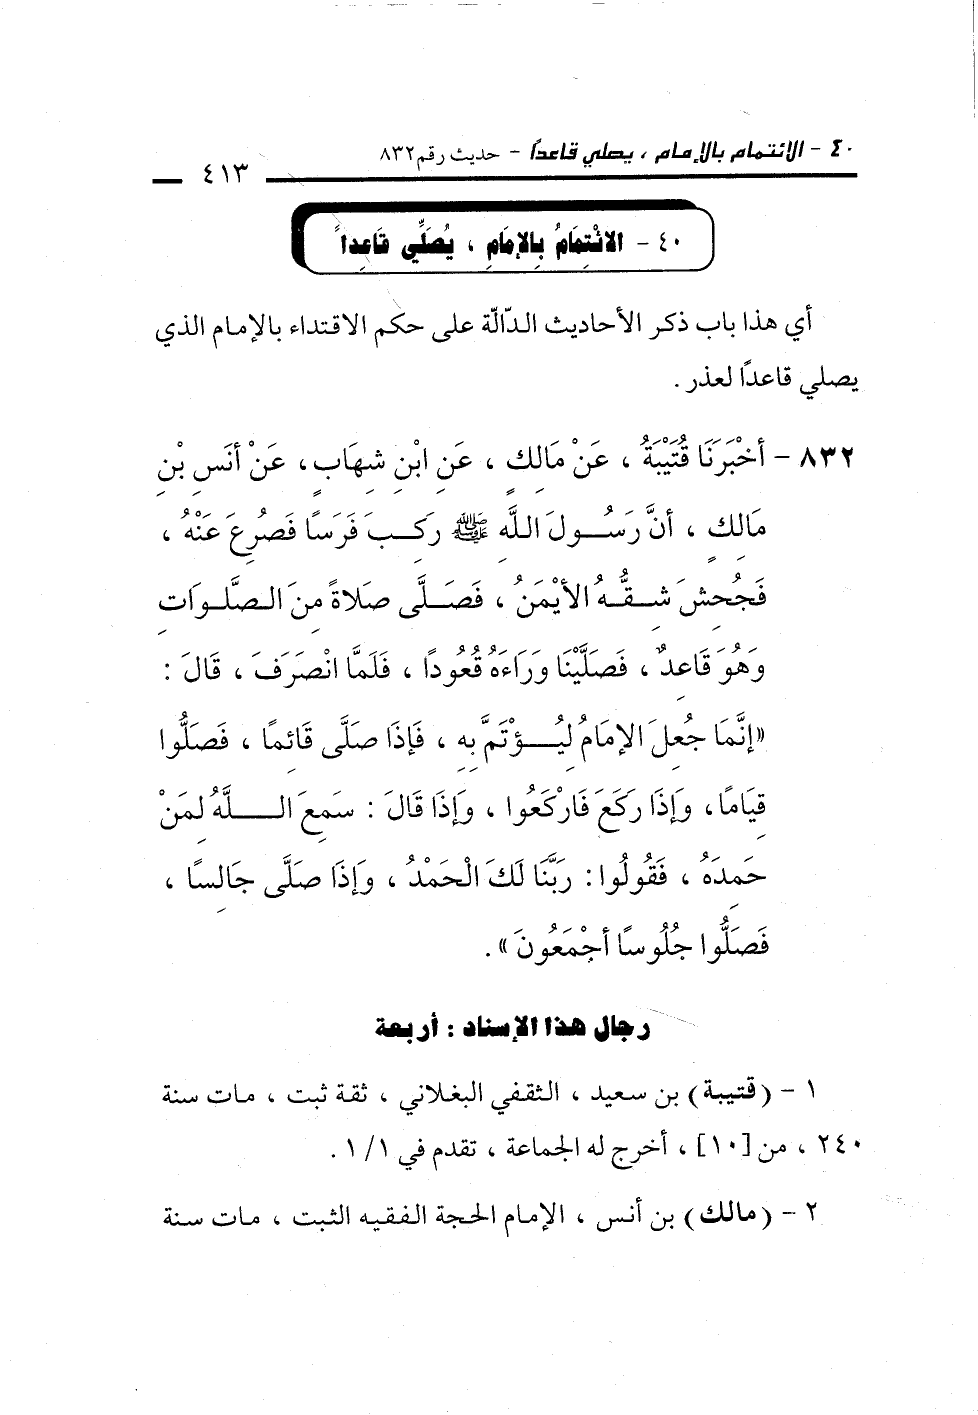 ٤٠ - الائتمام بالإمام ، يصلي قاعدًا - حديث رقم ٨٣٢
٤١٣
٤٠ - الائْتِمَامُ بِالإِمَامِ ، يُصَلِّي قَاعِداً
أي هذا باب ذكر الأحاديث الدّالّة على حكم الاقتداء بالإمام الذي
يصلي قاعدًا لعذر .
٨٣٢ - أَخْبَرَنَا قُتَيْبَةُ ، عَنْ مَالِكٍ ، عَنِ ابْنِ شِهَابٍ ، عَنْ أَنَسِ بْنِ
مَالِكٍ ، أَنَّ رَسُولَ اللَّهِ ﷺ رَكِبَ فَرَسًا فَصُرِعَ عَنْهُ ،
فَجُحِشَ شِقُّهُ الأَيْمَنُ ، فَصَلَّى صَلاةً مِنَ الصَّلَوَاتِ
وَهُوَ قَاعِدٌ ، فَصَلَّيْنَا وَرَاءَهُ قُعُودًا ، فَلَمَّا انْصَرَفَ ، قَالَ :
«إِنَّمَا جُعِلَ الإِمَامُ لِيُؤْتَمَّ بِهِ ، فَإِذَا صَلَّى قَائِمًا ، فَصَلُّوا
قِيَامًا ، وَإِذَا رَكَعَ فَارْكَعُوا ، وَإِذَا قَالَ : سَمِعَ اللَّهُ لِمَنْ
حَمِدَهُ ، فَقُولُوا : رَبَّنَا لَكَ الْحَمْدُ ، وَإِذَا صَلَّى جَالِسًا ،
فَصَلُّوا جُلُوسًا أَجْمَعُونَ» .
رجال هذا الإسناد : أربعة
١ - (قتيبة) بن سعيد ، الثقفي البغلاني ، ثقة ثبت ، مات سنة
٢٤٠ ، من [١٠] ، أخرج له الجماعة ، تقدم في ١/١ .
٢ - (مالك) بن أنس ، الإمام الحجة الفقيه الثبت ، مات سنة